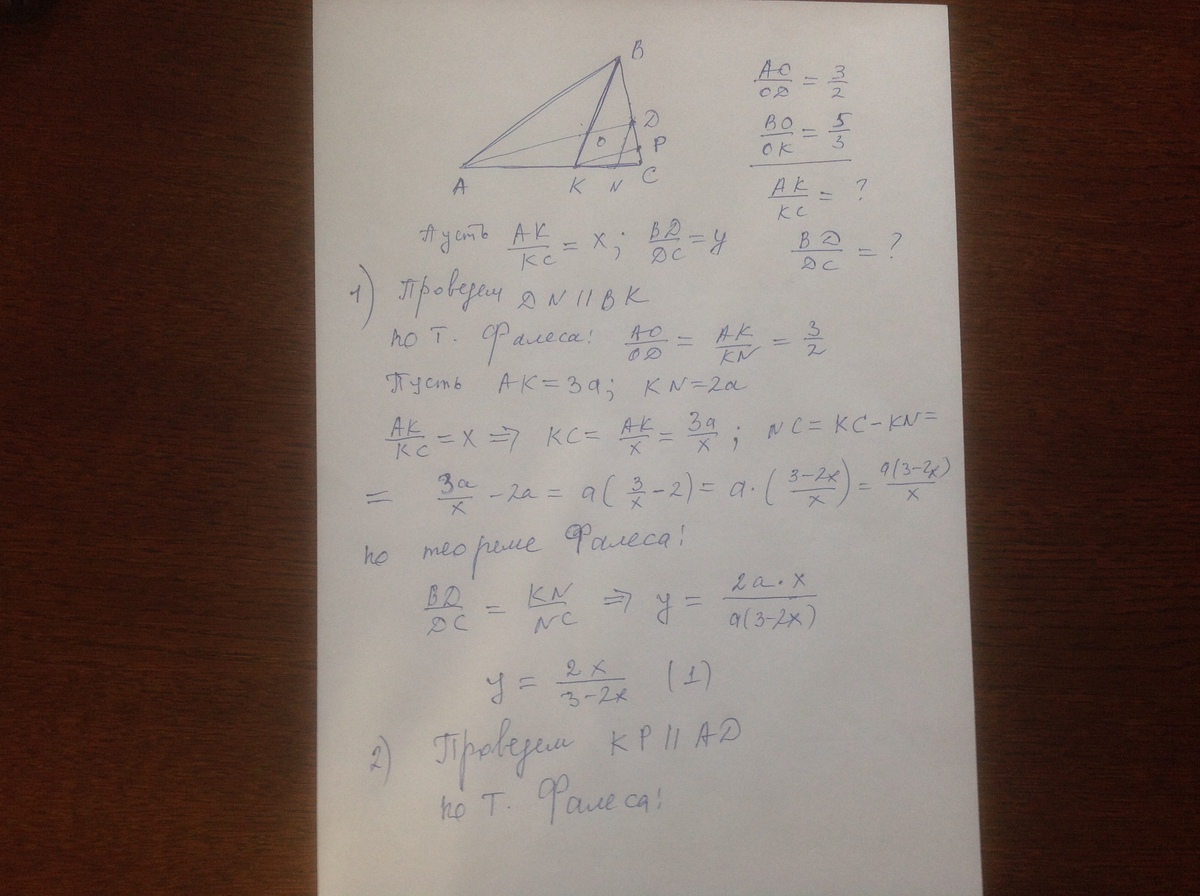 B
D
O
P
A
K
N
C
AO/OD = 3/2
BO/OK = 5/3
AK/KC = ?
BD/DC = ?
Пусть AK/KC = x; BD/DC = y
1) Проведем DN || BK
по т. Фалеса: AO/OD = AK/KN = 3/2
Пусть AK = 3a; KN = 2a
AK/KC = x => KC = AK/x = 3a/x; NC = KC - KN =
= 3a/x - 2a = a(3/x - 2) = a·((3-2x)/x) = a(3-2x)/x
по теореме Фалеса:
BD/DC = KN/NC => y = 2a·x/a(3-2x)
y = 2x/3-2x (1)
2) Проведем KP || AD
по т. Фалеса: